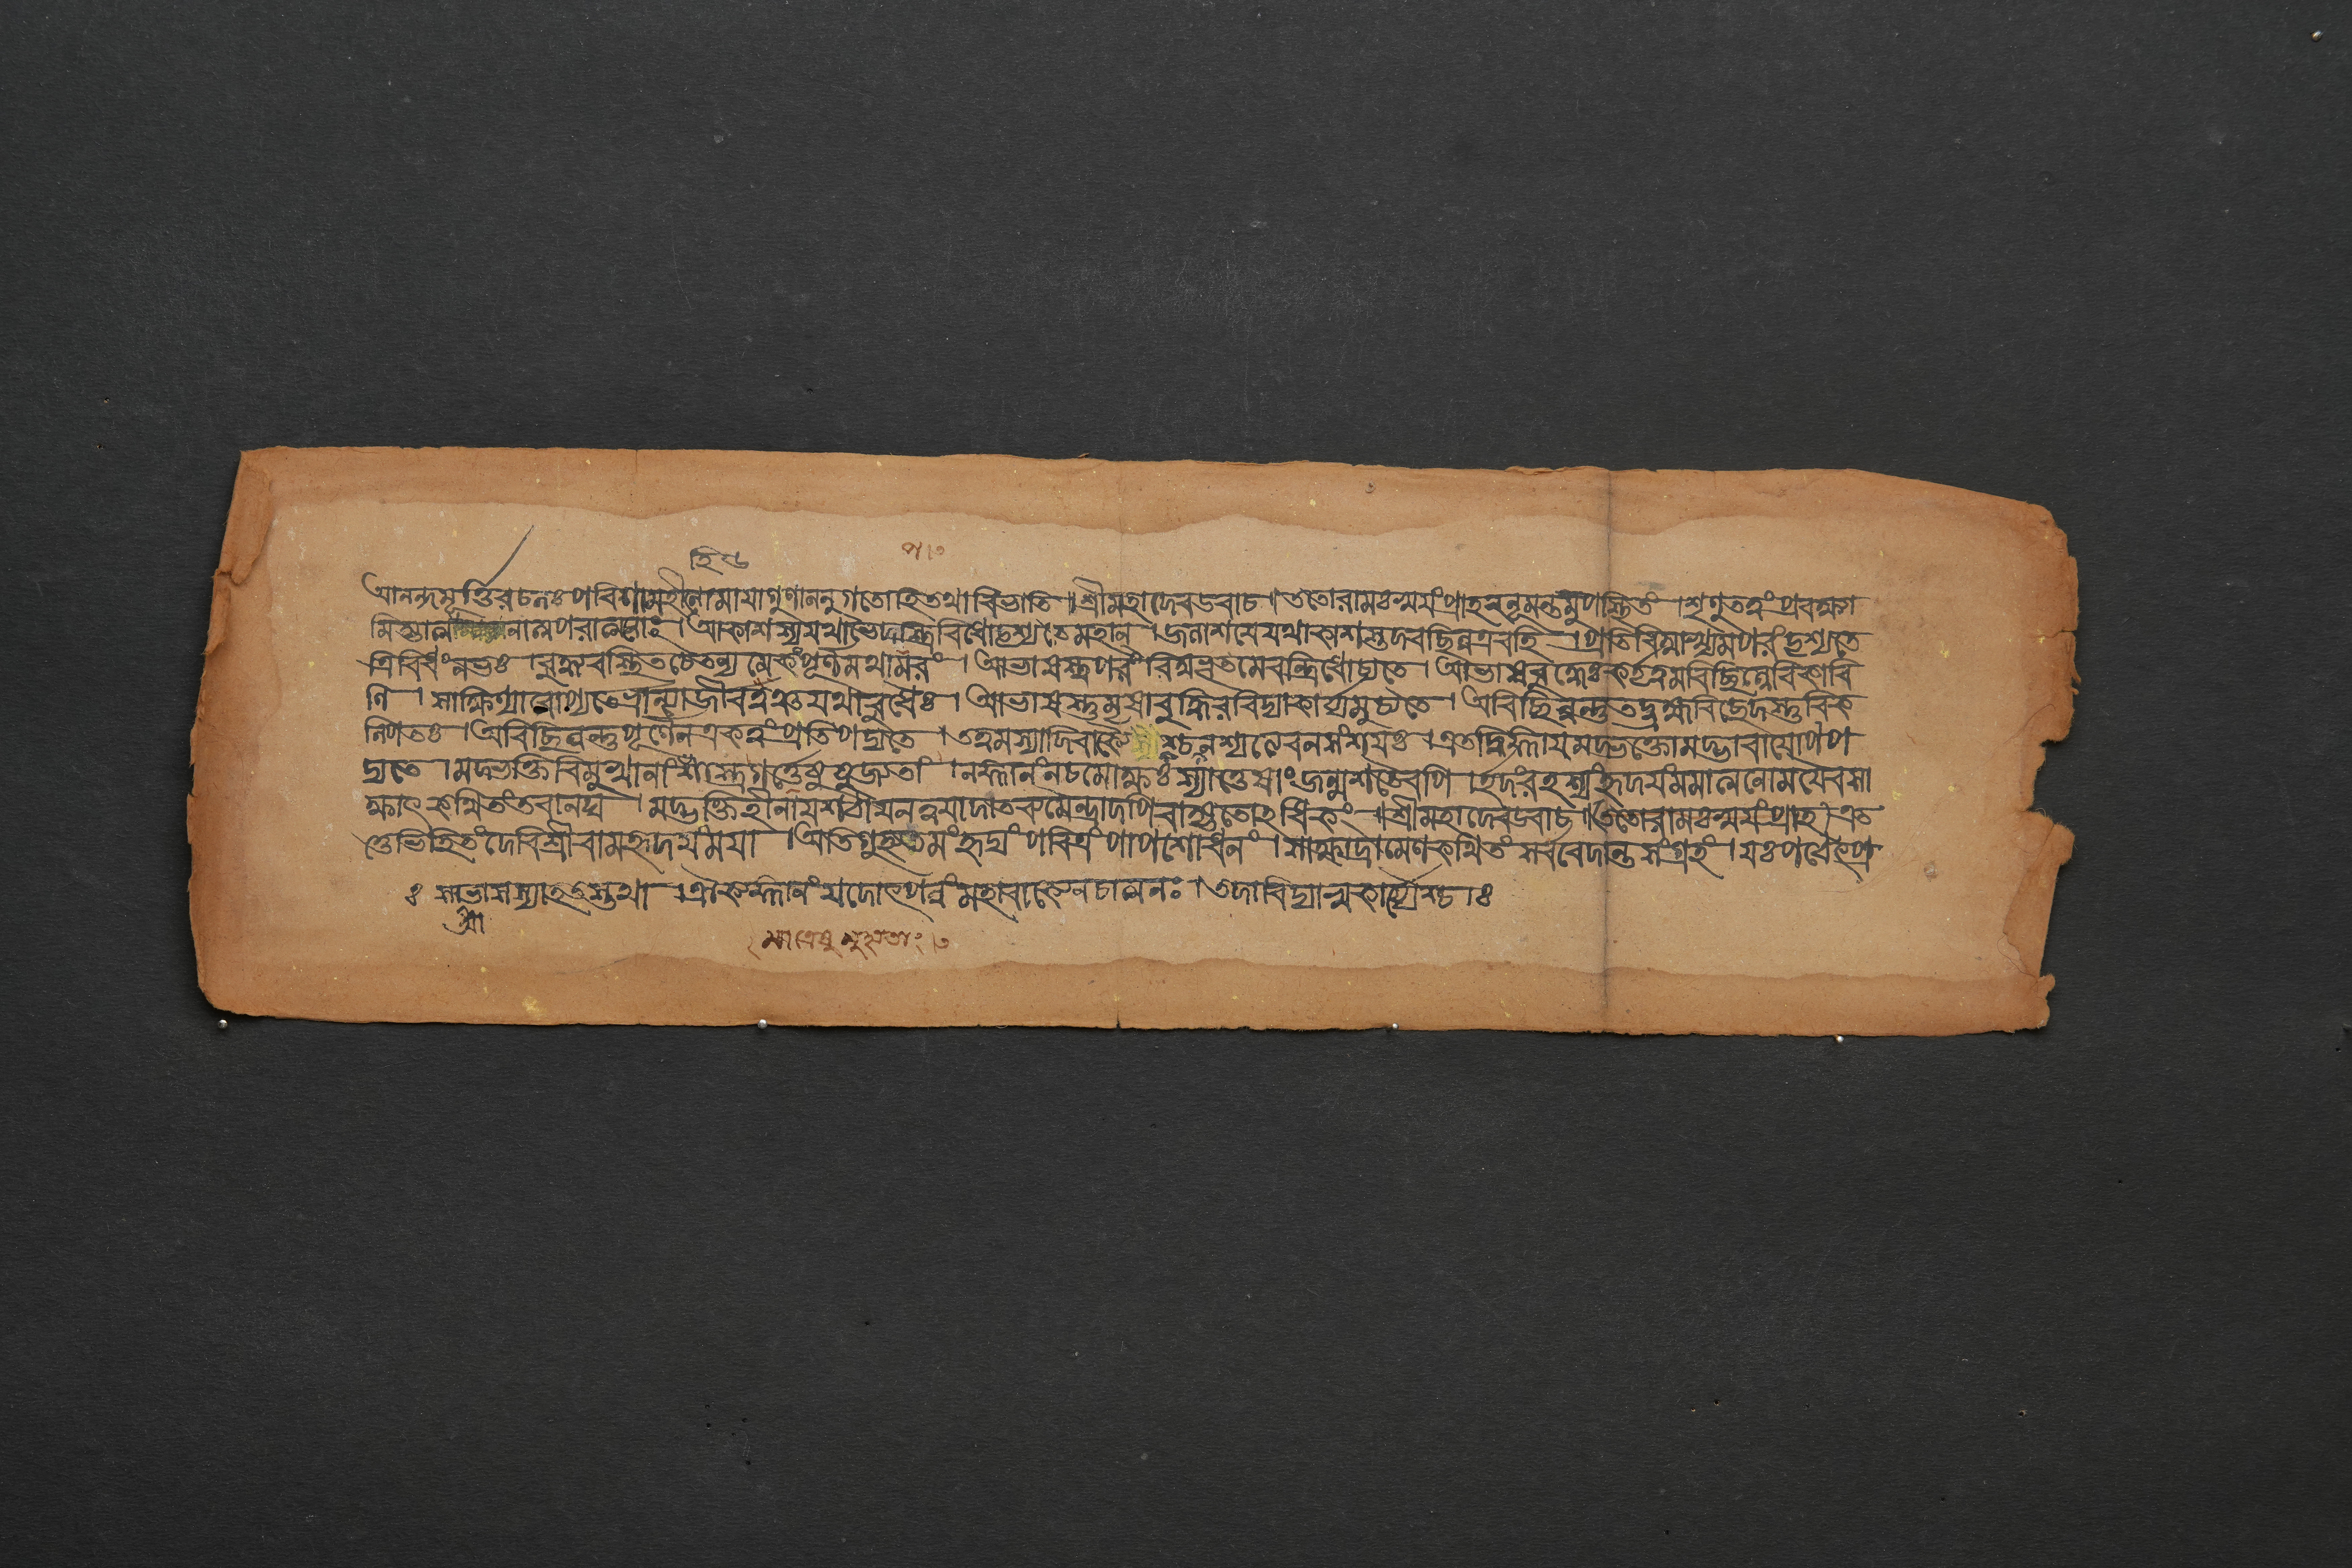 আনন্দমূর্ত্তিরচলঃপরিণামহীনোমায়াগুণাননুগতোহিতথাবিভাতি ॥শ্রীমহাদেবউবাচ।ততোরামঃস্বয়ংপ্রাহহনূমন্তমুপস্থিতং ।শৃণুতত্ত্বংপ্রবক্ষ্যা
মিহ্যাত্মানাত্মপরাত্মনাং ।আকাশস্যযথাভেদস্ত্রিবিধোদৃশ্যতেমহান্ ।জলাশয়েযথাকাশস্তদবচ্ছিন্নএবহি ।প্রতিবিম্বাখ্যমপরংদৃশ্যতে
ত্রিবিধংনভঃ ।বুদ্ধ্যবস্থিতচৈতন্যমেকংপূর্ণমথাপরং ।আভাসস্ত্বপরংবিম্বভূতমেবন্ত্রিধোচ্যতে ।আভাসবুদ্ধেঃকর্ত্তৃত্বমবিচ্ছিন্নেবিকারি
ণি ।সাক্ষিণ্যারোপ্যতেভ্রান্ত্যাজীবত্বঞ্চযথাবুধৈঃ ।আভাসস্তুমৃষাবুদ্ধিরবিদ্যাকার্য্যমুচ্যতে ।অবিচ্ছিন্নন্তুতদ্ব্রহ্মবিচ্ছেদস্তুবিক
ল্পিতঃ ।অবিচ্ছিন্নস্তুপূর্ণেনএকত্বংপ্রতিপদ্যতে ।তত্ত্বমস্যাদিবাক্যৈশ্চনশ্যত্যেবনসংশয়ঃ ।এতদ্বিজ্ঞায়মদ্ভক্তোমদ্ভাবায়োপপ
দ্যতে ।মদ্ভক্তিবিমুখানাংশাস্ত্রগর্ত্তেষুমুহ্যতাং ।নজ্ঞানংনচমোক্ষঃস্যাত্তেষাংজন্মশতৈরপি ।ইদংরহস্যংহৃদয়ংমমাত্মনোময়ৈবসা
ক্ষাৎকথিতংতবানঘ ।মদ্ভক্তিহীনায়শঠায়নত্বয়াদাতব্যমৈন্দ্রাদপিরাজ্যতোহধিকং ॥শ্রীমহাদেবউবাচ।ততোরামঃস্বয়ংপ্রাহ।এত
ত্তেভিহিতংদেবিশ্রীরামহৃদয়ংময়া ।অতিগুহ্যতমংহৃদ্যংপবিত্রংপাপশোধনং ।সাক্ষাদ্রামেণকথিতংসর্ববেদান্তসংগ্রহং ।যঃপঠেৎপ্র
ঃ সাভাসস্যাহতস্তথা ।ঐক্যজ্ঞানংযদোৎপন্নংমহাবাক্যেনচাত্মনঃ ।তদাবিদ্যাস্বকার্য্যৈশ্চ।ঃ
আ